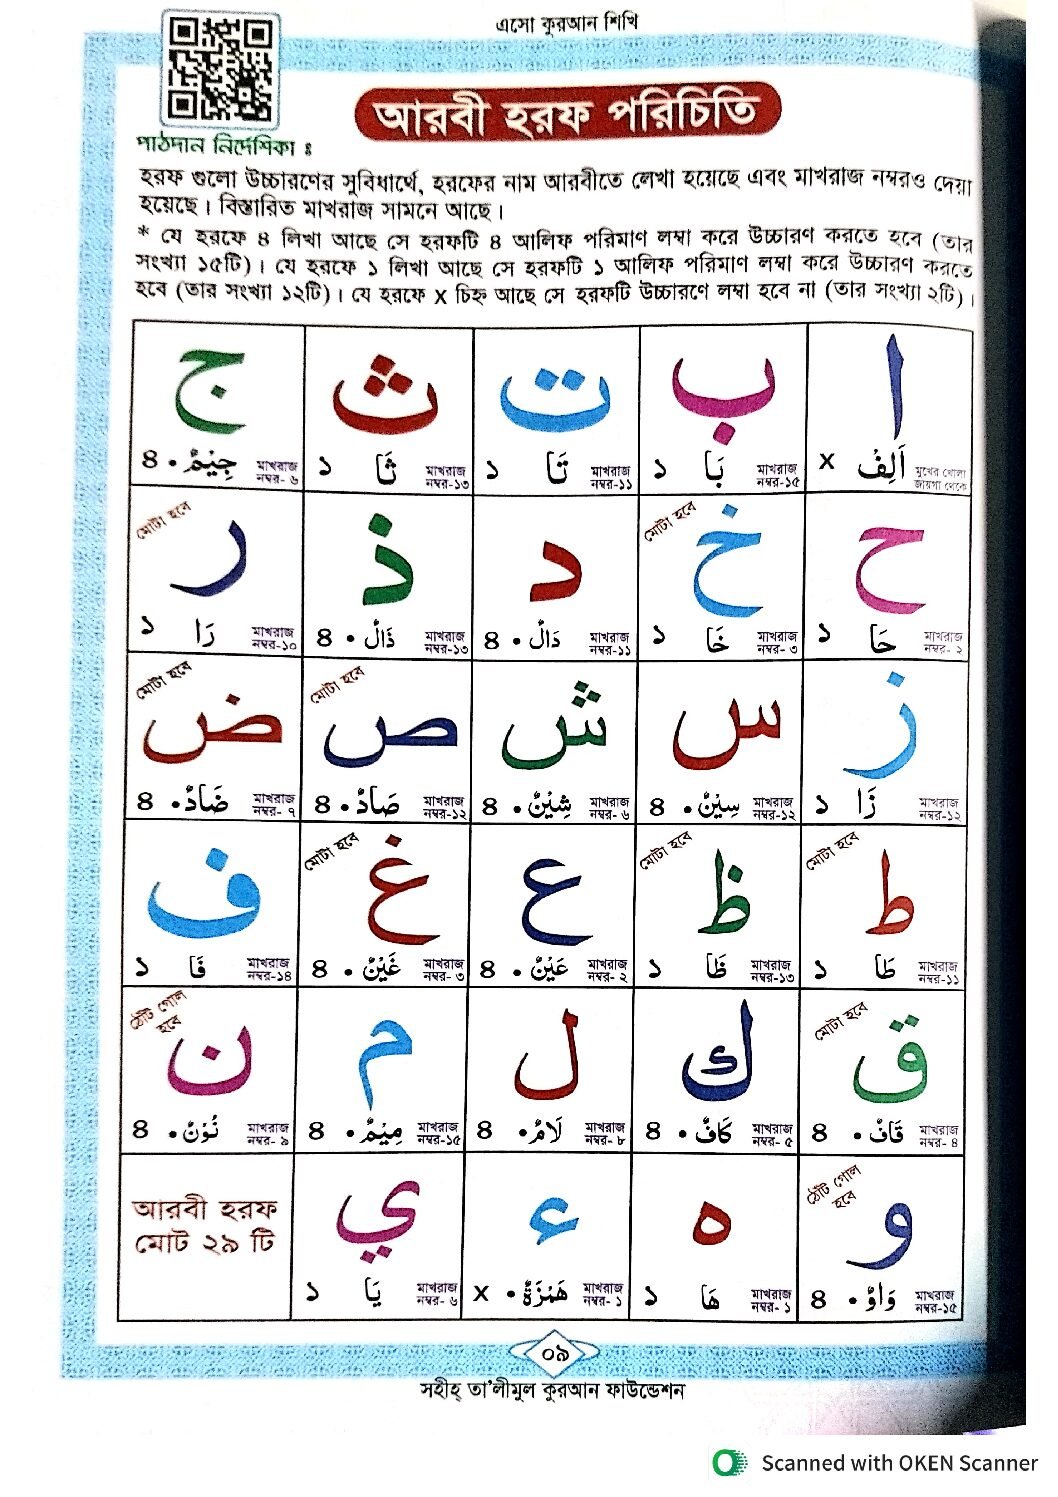 এসো কুরআন শিখি
আরবী হরফ পরিচিতি
পাঠদান নির্দেশিকা ঃ
হরফ গুলো উচ্চারণের সুবিধার্থে, হরফের নাম আরবীতে লেখা হয়েছে এবং মাখরাজ নম্বরও দেয়া
হয়েছে। বিস্তারিত মাখরাজ সামনে আছে।
* যে হরফে ৪ লিখা আছে সে হরফটি ৪ আলিফ পরিমাণ লম্বা করে উচ্চারণ করতে হবে (তার
সংখ্যা ১৫টি)। যে হরফে ১ লিখা আছে সে হরফটি ১ আলিফ পরিমাণ লম্বা করে উচ্চারণ করতে
হবে (তার সংখ্যা ১২টি)। যে হরফে X চিহ্ন আছে সে হরফটি উচ্চারণে লম্বা হবে না (তার সংখ্যা ২টি)।
ا ب ت ث ج
اَلِفْ X মুখের খোলা জায়গা থেকে
بَا ১ মাখরাজ নম্বর-১৫
تَا ১ মাখরাজ নম্বর-১১
ثَا ১ মাখরাজ নম্বর-১৩
جِيْمْ ৪ মাখরাজ নম্বর- ৬
ح خ د ذ ر
حَا ১ মাখরাজ নম্বর- ২
মোটা হবে خَا ১ মাখরাজ নম্বর- ৩
دَالْ ৪ মাখরাজ নম্বর-১১
ذَالْ ৪ মাখরাজ নম্বর-১৩
মোটা হবে رَا ১ মাখরাজ নম্বর-১০
ز س ش ص ض
زَا ১ মাখরাজ নম্বর-১২
سِيْنْ ৪ মাখরাজ নম্বর-১২
شِيْنْ ৪ মাখরাজ নম্বর- ৬
মোটা হবে صَادْ ৪ মাখরাজ নম্বর-১২
মোটা হবে ضَادْ ৪ মাখরাজ নম্বর- ৭
ط ظ ع غ ف
মোটা হবে طَا ১ মাখরাজ নম্বর-১১
মোটা হবে ظَا ১ মাখরাজ নম্বর-১৩
عَيْنْ ৪ মাখরাজ নম্বর- ২
মোটা হবে غَيْنْ ৪ মাখরাজ নম্বর- ৩
فَا ১ মাখরাজ নম্বর-১৪
ق ك ل م ن
মোটা হবে قَافْ ৪ মাখরাজ নম্বর- ৪
كَافْ ৪ মাখরাজ নম্বর- ৫
لَامْ ৪ মাখরাজ নম্বর- ৮
مِيْمْ ৪ মাখরাজ নম্বর-১৫
ঠোঁট গোল হবে نُوْنْ ৪ মাখরাজ নম্বর- ৯
و ه ء ي
ঠোঁট গোল হবে وَاوْ ৪ মাখরাজ নম্বর-১৫
هَا ১ মাখরাজ নম্বর- ১
هَمْزَةْ X মাখরাজ নম্বর- ১
يَا ১ মাখরাজ নম্বর- ৬
আরবী হরফ
মোট ২৯ টি
০৯
সহীহ্ তা'লীমুল কুরআন ফাউন্ডেশন
Scanned with OKEN Scanner